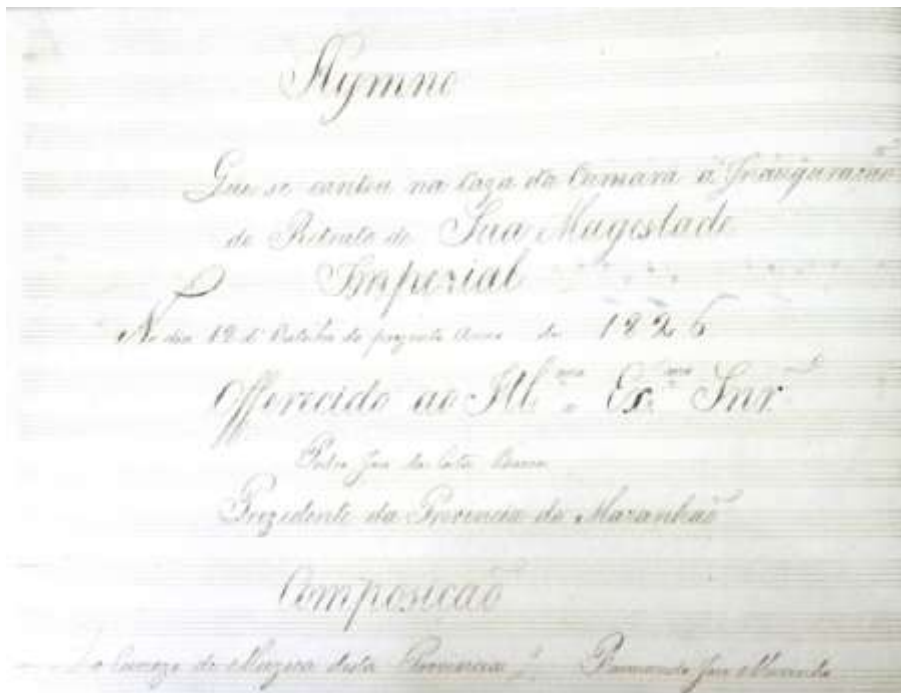 Hymno
Que se cantou na Caza da Camara á Inauguração
do Retrato de Sua Magestade
Imperial
No dia 12 d' Outubro do prezente Anno de 1826
Offerecido ao Ill.mo Ex.mo Snr.
Pedro Jose da Costa Barros
Prezidente da Provincia do Maranhaõ
Composição
de Muzica desta Provincia